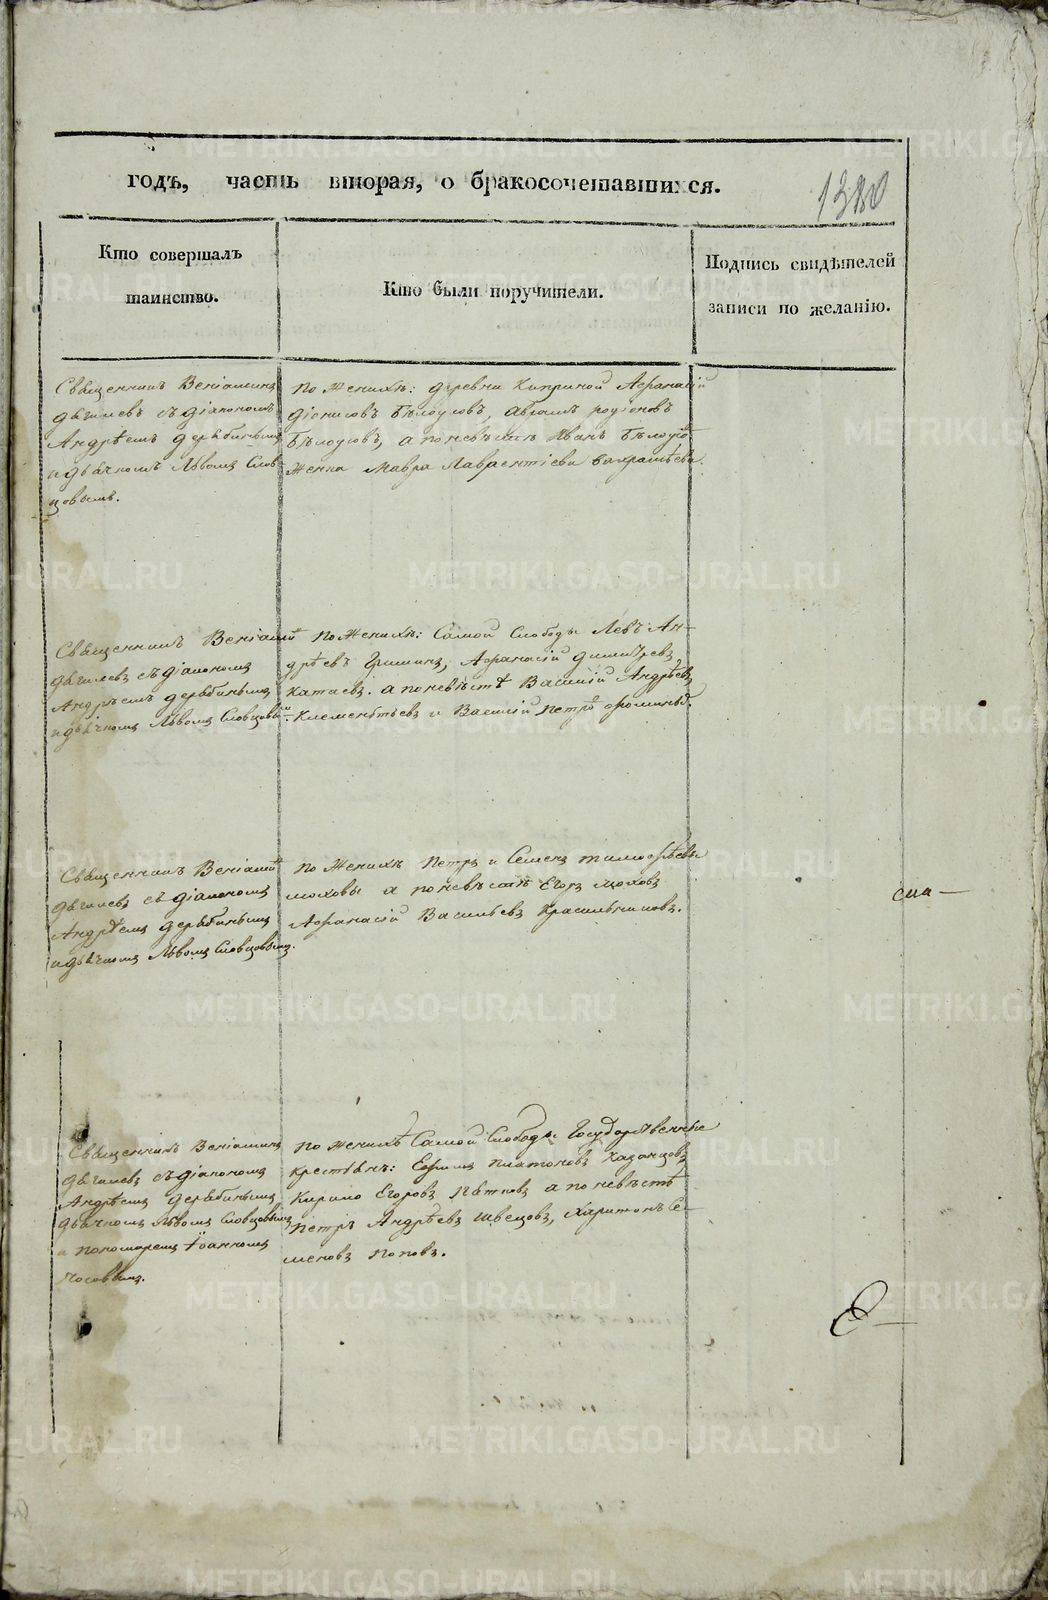 годъ, часть вторая, о бракосочетавшихся.
1380
Кто совершалъ
таинство.
Кто были поручители.
Подпись свидѣтелей
записи по желанію.
Священникъ Веніаминъ
Дягилевъ съ діакономъ
Андрѣемъ Дерябинымъ
и дьячкомъ Львомъ Слов-
цовымъ.
По женихѣ: деревни Киприной Афанасій
Діонисовъ Бѣлоусовъ, Абрамъ Родіоновъ
Бѣлоусовъ, а по невѣстѣ Иванъ Бѣлоусо
женка Мавра Лаврентіева Вахрамѣева.
Священникъ Веніамин
Дягилевъ съ діакономъ
Андрѣемъ Дерябинымъ
и дьячкомъ Львомъ Словцовым
По женихѣ: Самой Слободы Левъ Ан-
дрѣевъ Гришинъ, Афанасій Димитревъ
Катаевъ. а по невѣстѣ Василий Андрѣевъ
Клементьевъ и Василій Петро Фоминыхъ.
Священникъ Веніамин
Дягилевъ съ діакономъ
Андрѣемъ Дерябинымъ
и дьячкомъ Львомъ Словцовымъ.
По женихѣ Петръ и Семенъ Тимофѣевы
Моховы а по невѣстѣ Егоръ Мохов
Афанасій Васильевъ Красильниковъ.
спа-
Священникъ Веніаминъ
Дягилевъ съ діакономъ
Андрѣемъ Дерябинымъ
дьячкомъ Львомъ Словцовымъ
и пономаремъ Іоанномъ
Носовымъ.
По женихѣ Самой Слободы Государственные
крестьянъ: Ефимъ Платоновъ Казанцовъ,
Кирило Егоровъ Пятковъ а по невѣстѣ
Петръ Андрѣевъ Швецовъ, Харитонъ Се-
меновъ Поповъ.
METRIKI.GASO-URAL.RU